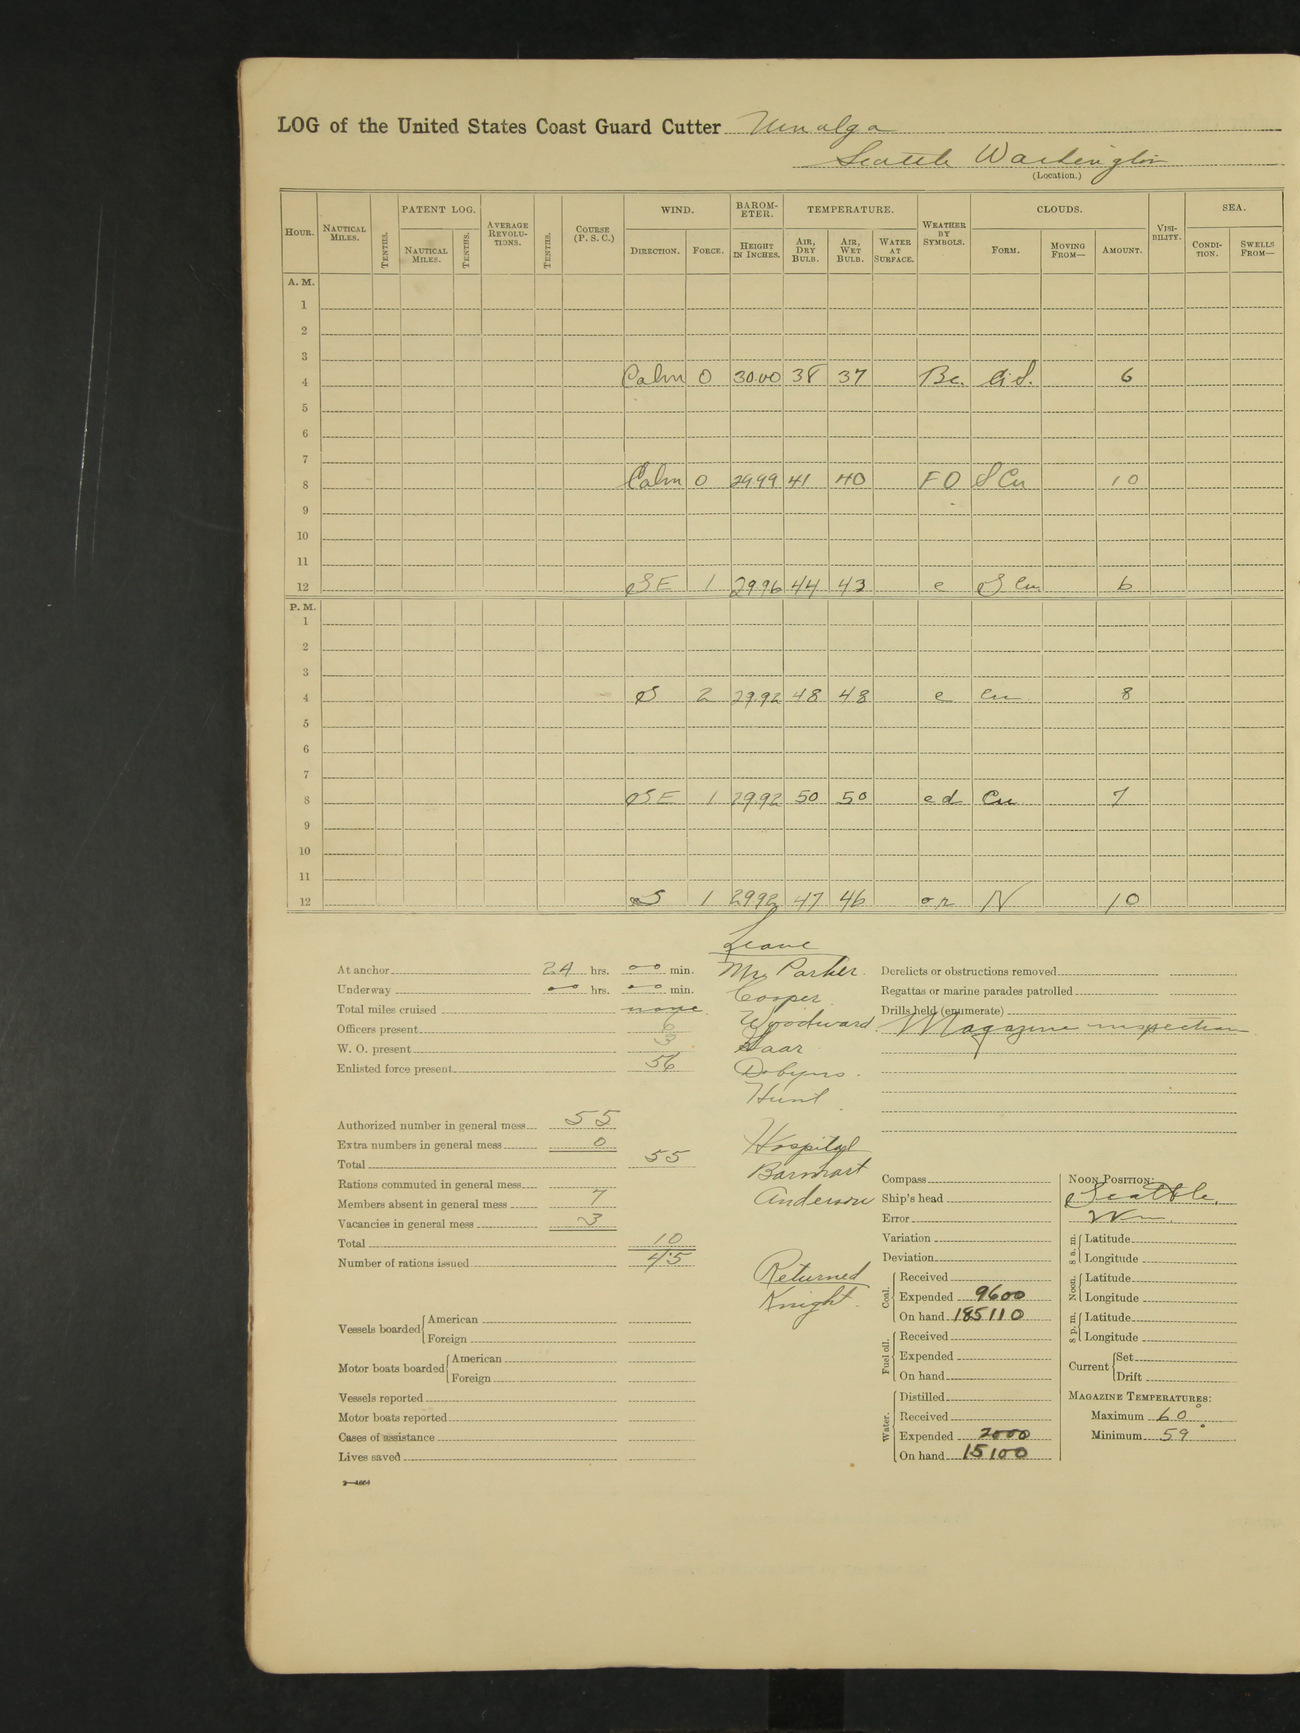 LOG of the United States Coast Guard Cutter Unalga
Seattle Washington
(Location.)
HOUR. NAUTICAL MILES. TENTHS. PATENT LOG. NAUTICAL MILES. TENTHS. AVERAGE REVOLUTIONS. TENTHS. COURSE (P. S. C.) WIND. DIRECTION. FORCE. BAROMETER. HEIGHT IN INCHES. TEMPERATURE. AIR, DRY BULB. AIR, WET BULB. WATER AT SURFACE. WEATHER BY SYMBOLS. CLOUDS. FORM. MOVING FROM— AMOUNT. VISIBILITY. SEA. CONDITION. SWELLS FROM—
A. M.
1
2
3
4 Calm 0 30.00 38 37 Bc. Ci S. 6
5
6
7
8 Calm 0 29.99 41 40 F O S Cu 10
9
10
11
12 SE 1 29.96 44 43 c S Cu 6
P. M.
1
2
3
4 S 2 29.92 48 48 c Cu 8
5
6
7
8 SE 1 29.92 50 50 c d Cu 7
9
10
11
12 S 1 29.92 47 46 o r N 10
Leave
Mr. Parker
Cooper
Woodward
Haar
Dobyns
Hunt
Hospital
Barnhart
Anderson
Returned
Knight
At anchor 24 hrs. 00 min.
Underway 00 hrs. 00 min.
Total miles cruised none
Officers present 6
W. O. present 3
Enlisted force present 56
Authorized number in general mess 55
Extra numbers in general mess 0
Total 55
Rations commuted in general mess
Members absent in general mess 7
Vacancies in general mess 3
Total 10
Number of rations issued 45
Vessels boarded American
Foreign
Motor boats boarded American
Foreign
Vessels reported
Motor boats reported
Cases of assistance
Lives saved
2—4664
Derelicts or obstructions removed
Regattas or marine parades patrolled
Drills held (enumerate)
Magazine inspection
Compass
Ship's head
Error
Variation
Deviation
Coal. Received
Expended 9600
On hand 185110
Fuel oil. Received
Expended
On hand
Water. Distilled
Received
Expended 2000
On hand 15100
NOON POSITION:
Seattle,
Wn.
8 a. m. Latitude
Longitude
Noon. Latitude
Longitude
8 p. m. Latitude
Longitude
Current Set
Drift
MAGAZINE TEMPERATURES:
Maximum 60°
Minimum 59°